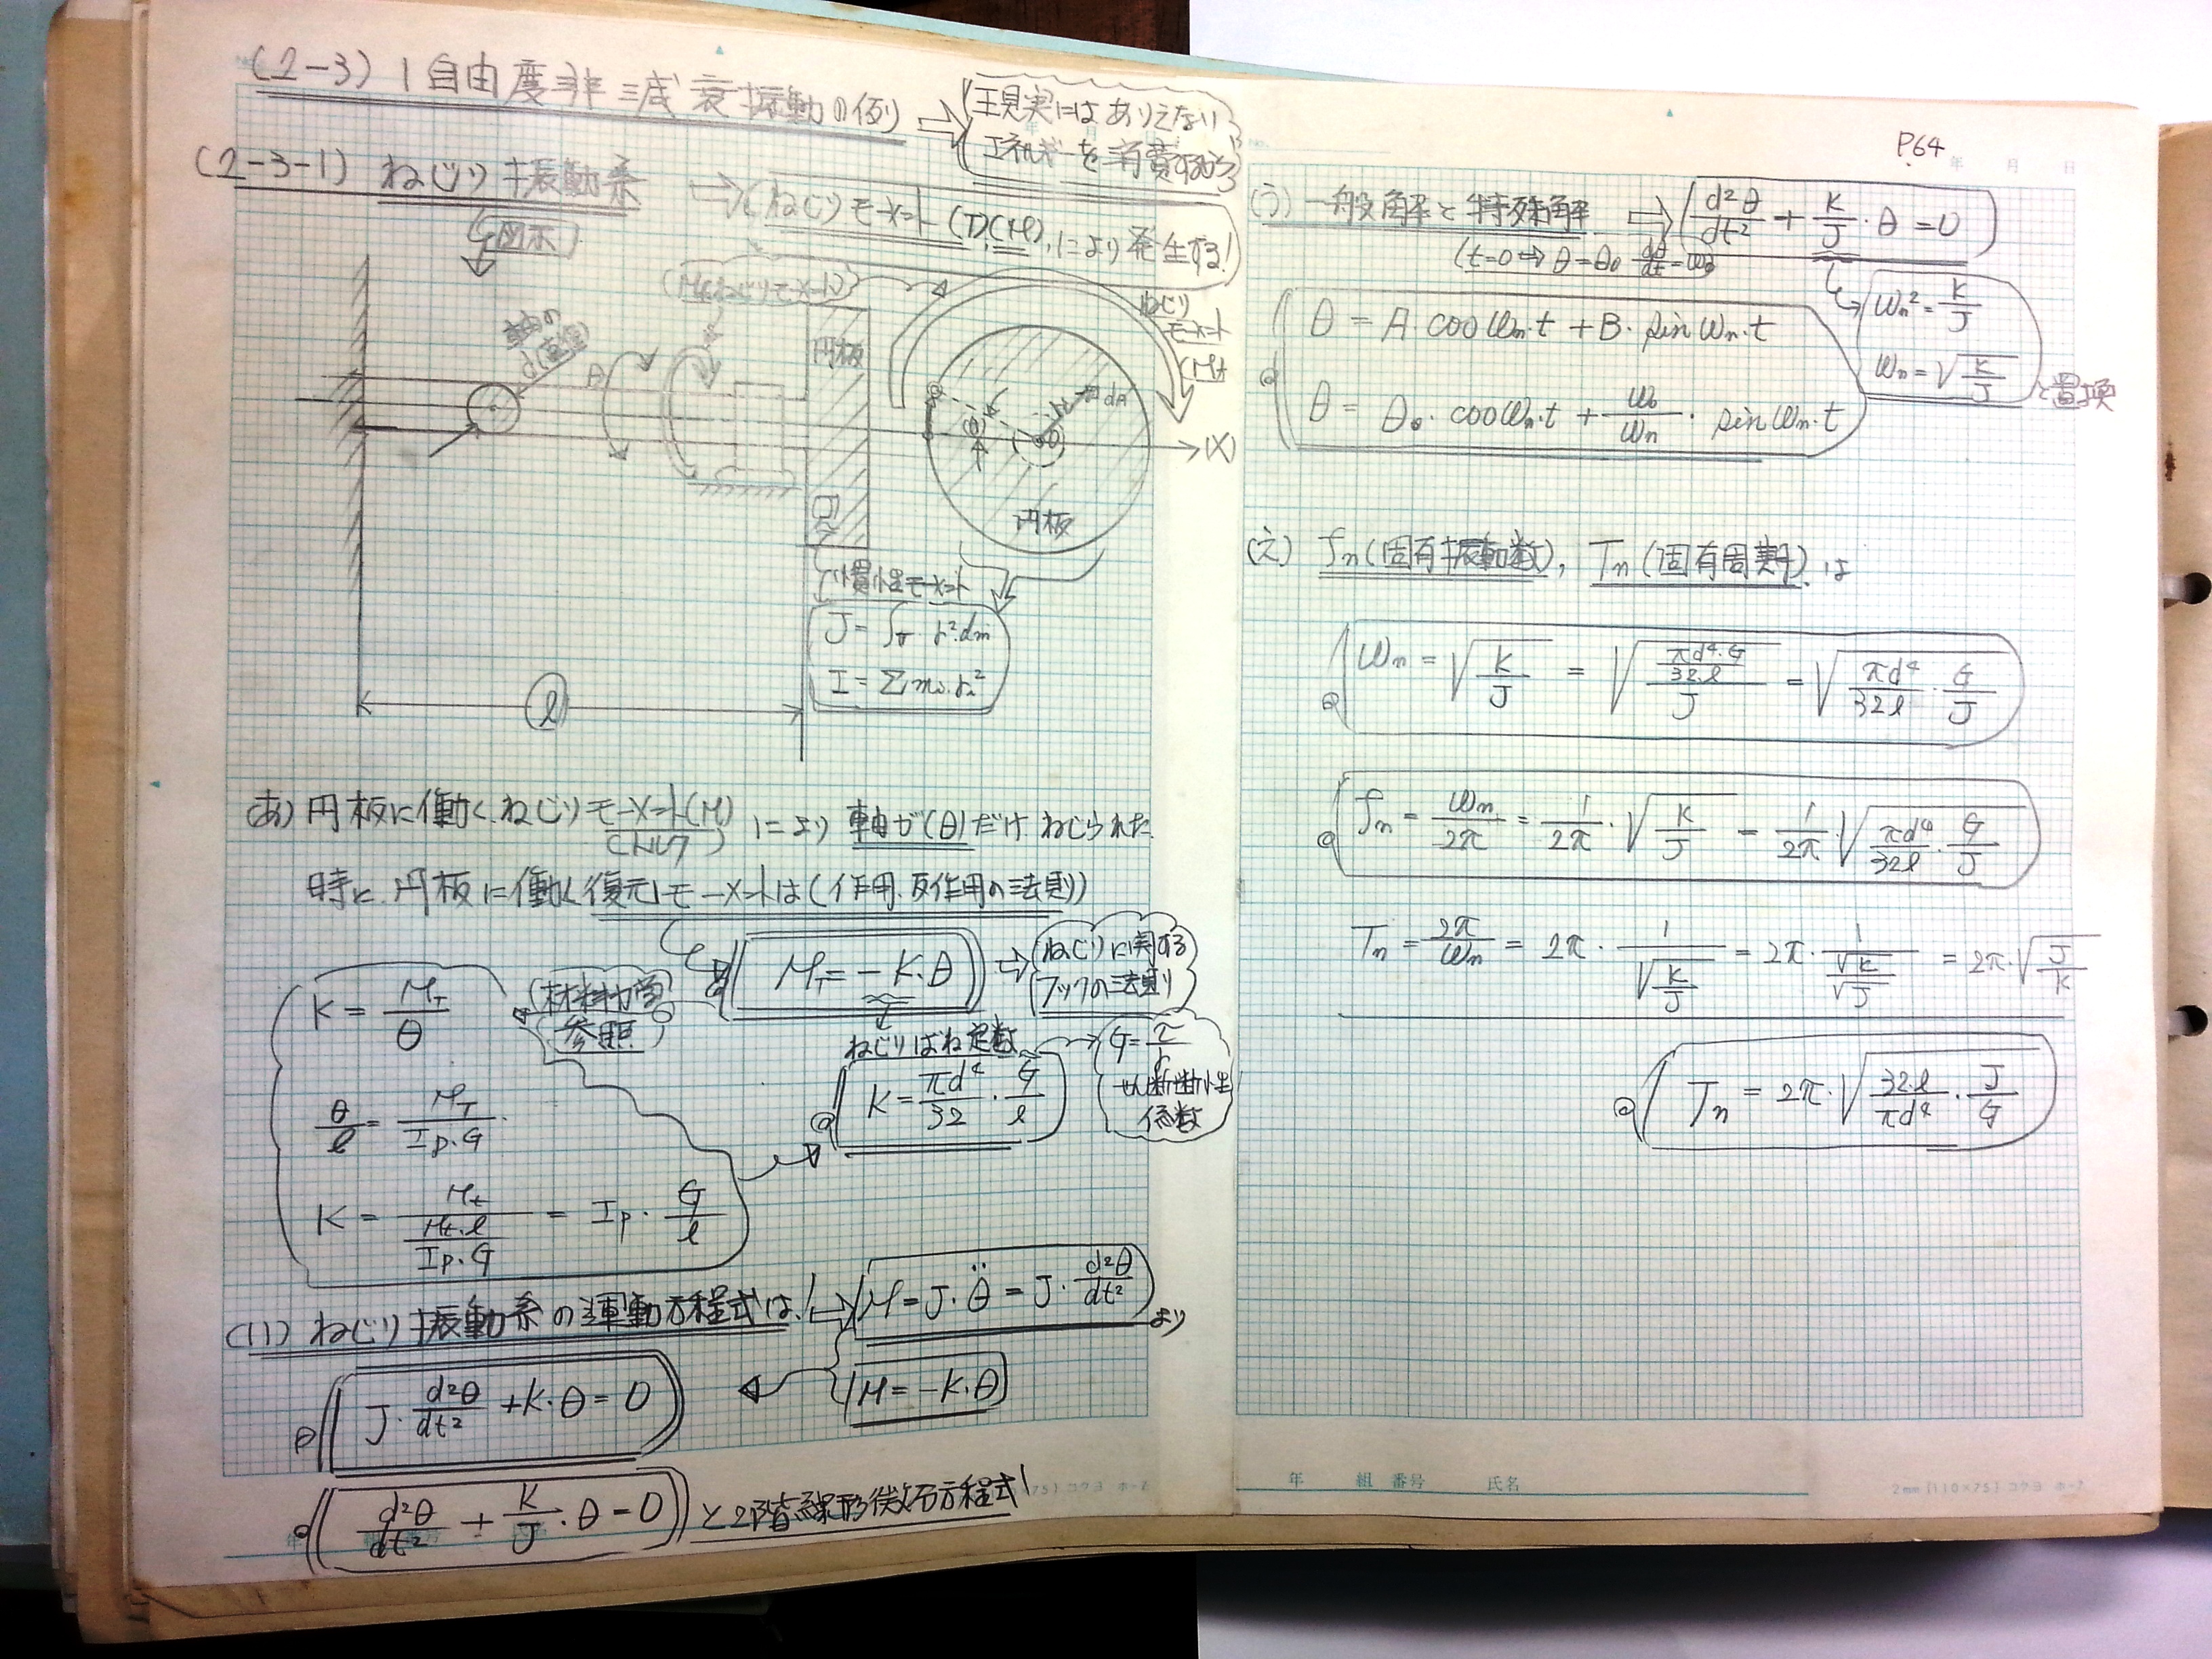 (2-3) 1自由度非減衰振動の例
現実にはありえない
エネルギーを消費するから
(2-3-1) ねじり振動系
(ねじりモーメント(T)(M)により発生する!
図示
(Mtねじりモーメント)
軸の
d(直径)
θ
円板
ねじり
モーメント
(Mt
dA
(X)
円板
慣性モーメント
J = ∫r²dm
I = Σmi・ri²
l
(あ) 円板に働く、ねじりモーメント(M)により 軸が(θ)だけねじられた
(トルク)
時に、円板に働く復元モーメントは(作用・反作用の法則)
MT = -K・θ
ねじりに関する
フックの法則
K = MT/θ
(材料力学
参照)
ねじりばね定数
K = πd⁴/32・G/l
G = τ/r
せん断弾性
係数
θ/l = MT/(Ip・G)
K = Mt/(Mt・l/(Ip・G)) = Ip・G/l
(い) ねじり振動系の運動方程式は、
M = J・θ̈ = J・d²θ/dt² より
M = -K・θ
J・d²θ/dt² + K・θ = 0
d²θ/dt² + K/J・θ = 0 と2階線形微分方程式!
P.64
年 月 日
(う) 一般解と特殊解
d²θ/dt² + K/J・θ = 0
(t=0 ⇒ θ=θ0 dθ/dt=ω0)
ωn² = K/J
ωn = √(K/J) と置換
θ = A cosωn・t + B・sinωn・t
θ = θ0・cosωn・t + ω0/ωn・sinωn・t
(え) fn(固有振動数), Tn(固有周期)は
ωn = √(K/J) = √((πd⁴・G/32・l)/J) = √(πd⁴/32l・G/J)
fn = ωn/2π = 1/2π・√(K/J) = 1/2π・√(πd⁴/32l・G/J)
Tn = 2π/ωn = 2π・1/√(K/J) = 2π・1/(√K/√J) = 2π・√(J/K)
Tn = 2π・√(32・l/πd⁴・J/G)
年 組 番号 氏名
2mm (110×75) コクヨ ホ-7